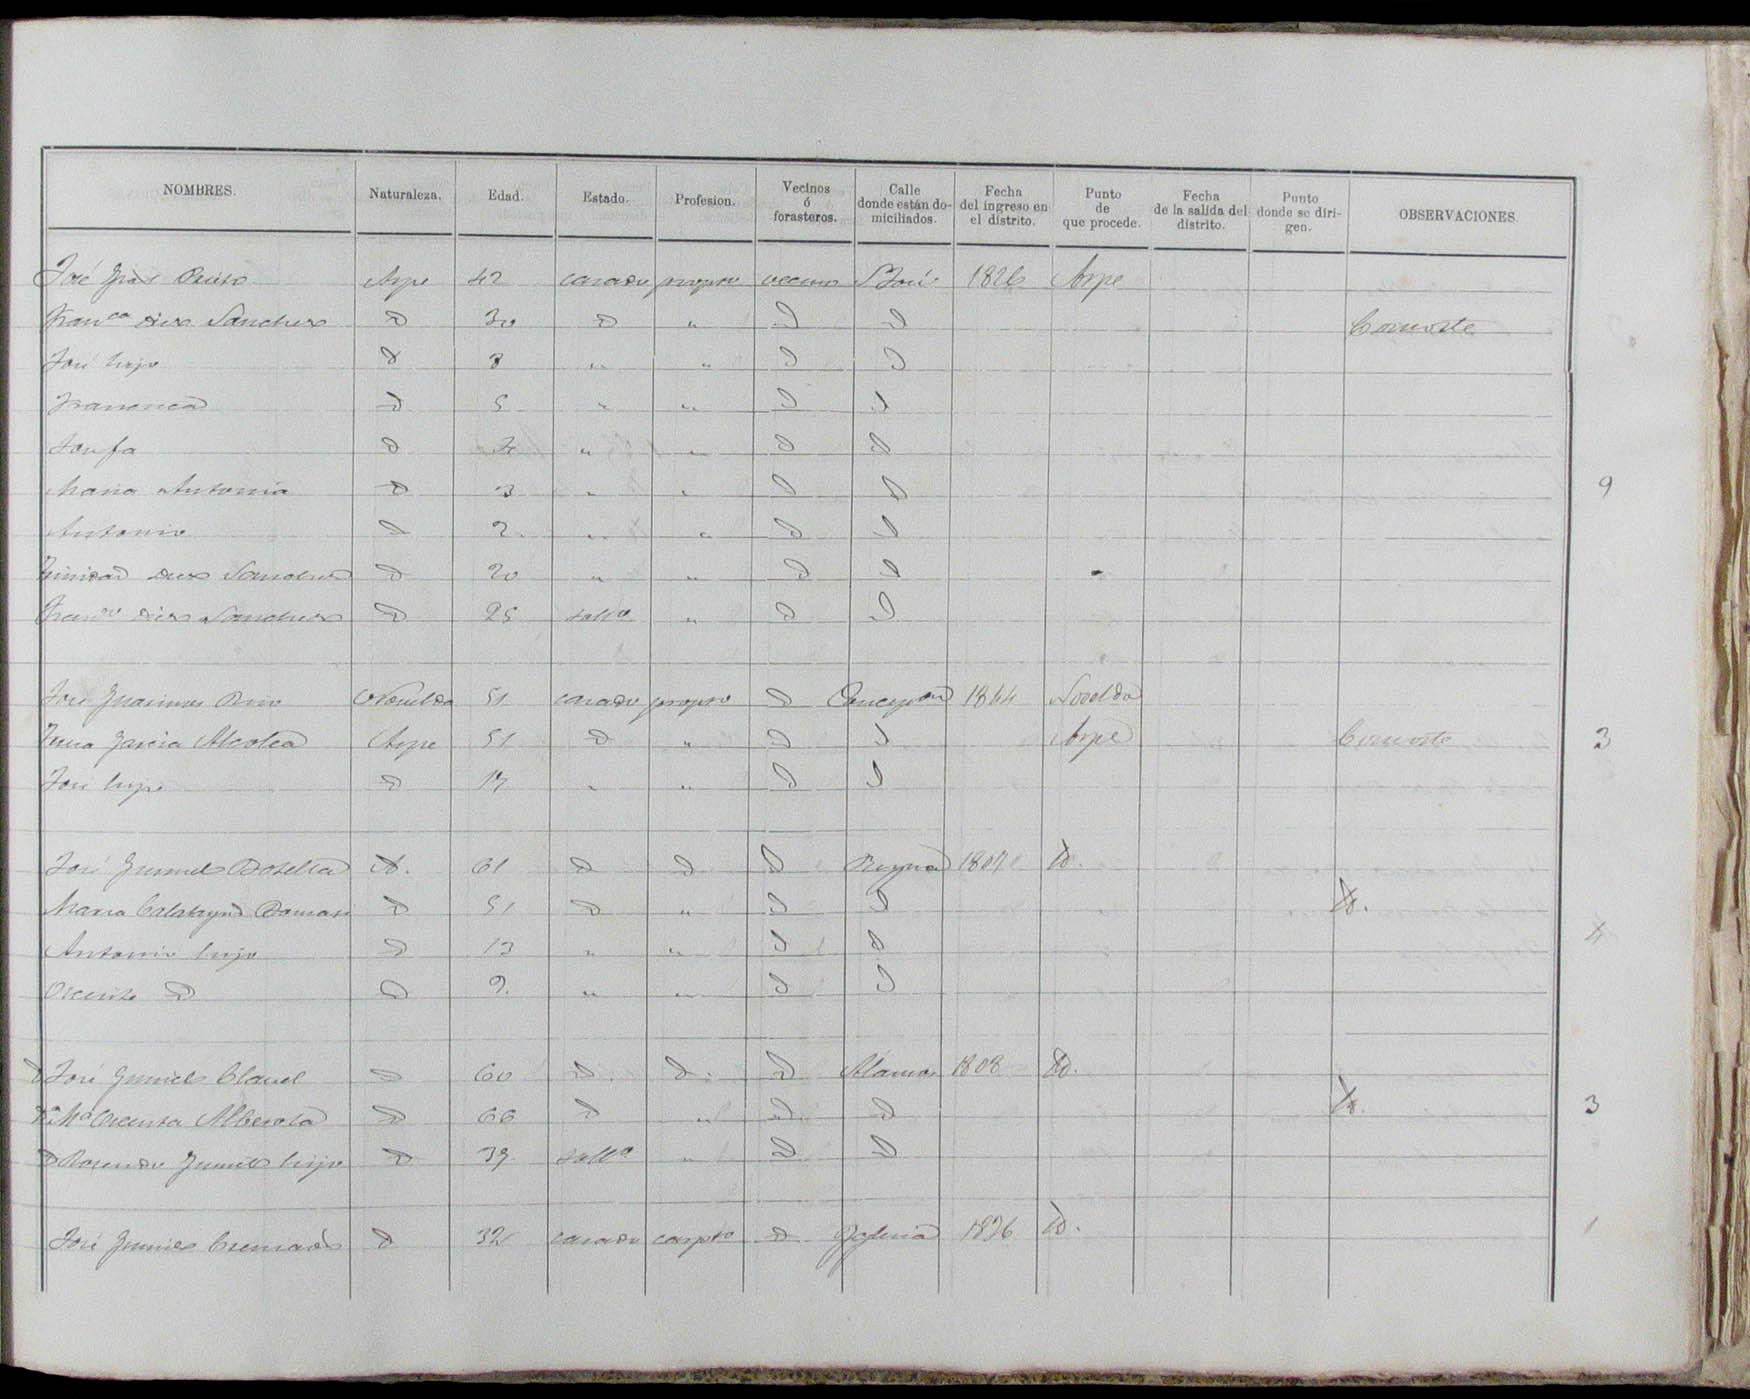 NOMBRES. Naturaleza. Edad. Estado. Profesion. Vecinos ó forasteros. Calle donde están domiciliados. Fecha del ingreso en el distrito. Punto de que procede. Fecha de la salida del distrito. Punto donde se dirigen. OBSERVACIONES.
José Aspe 42 casado propro vecino S José 1826 Aspe
Franca Diez Sanchez D 30 D " D D Consorte
José hijo D 8 " " D D
Francisca D 5 " " D D
Josefa D 4 " " D D
Maria Antonia D 3 " " D D 9
Antonio D 2 " " D D
Trinidad Diez Sanchez D 20 " " D D
Franco Diez Sanchez D 25 soltro " D D
José 51 casado propro D Concepon 1844 Novelda
Garcia Alcolea Aspe 51 D " D D Aspe Consorte 3
José hijo D 17 " " D D
José Botella D. 61 D D D 1807 D.
Maria Calatayud D 51 D " D D D.
Antonio hijo D 13 " " D D 4
Vicente D D 9. " " D D
D José Clavel D 60 D. D. D 1808 D.
Da Ma Vicenta Alberola D 66 D " D D D. 3
D Rosendo hijo D 39 soltro " D D
José D 32 casado carpro D Yglesia 1836 D. 1